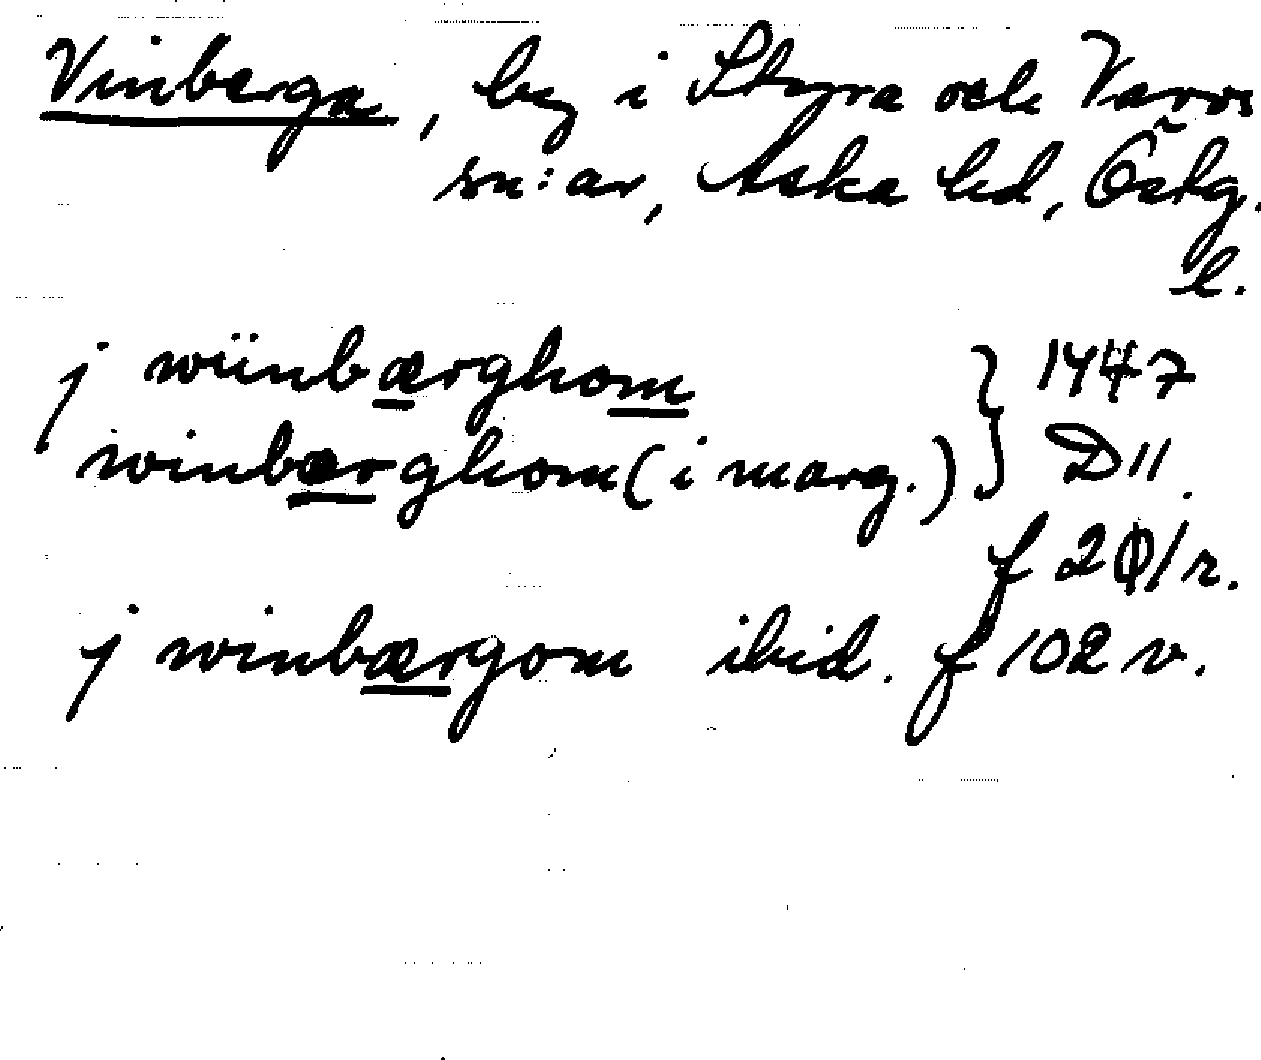 Vinberga, by i Styra och Varvs
sn:ar, Aska hd, Östg.
l.
j wiinbærghom } 1447
winbærghom (i marg.) } D 11.
f 201 r.
j winbærgom ibid. f 102 v.